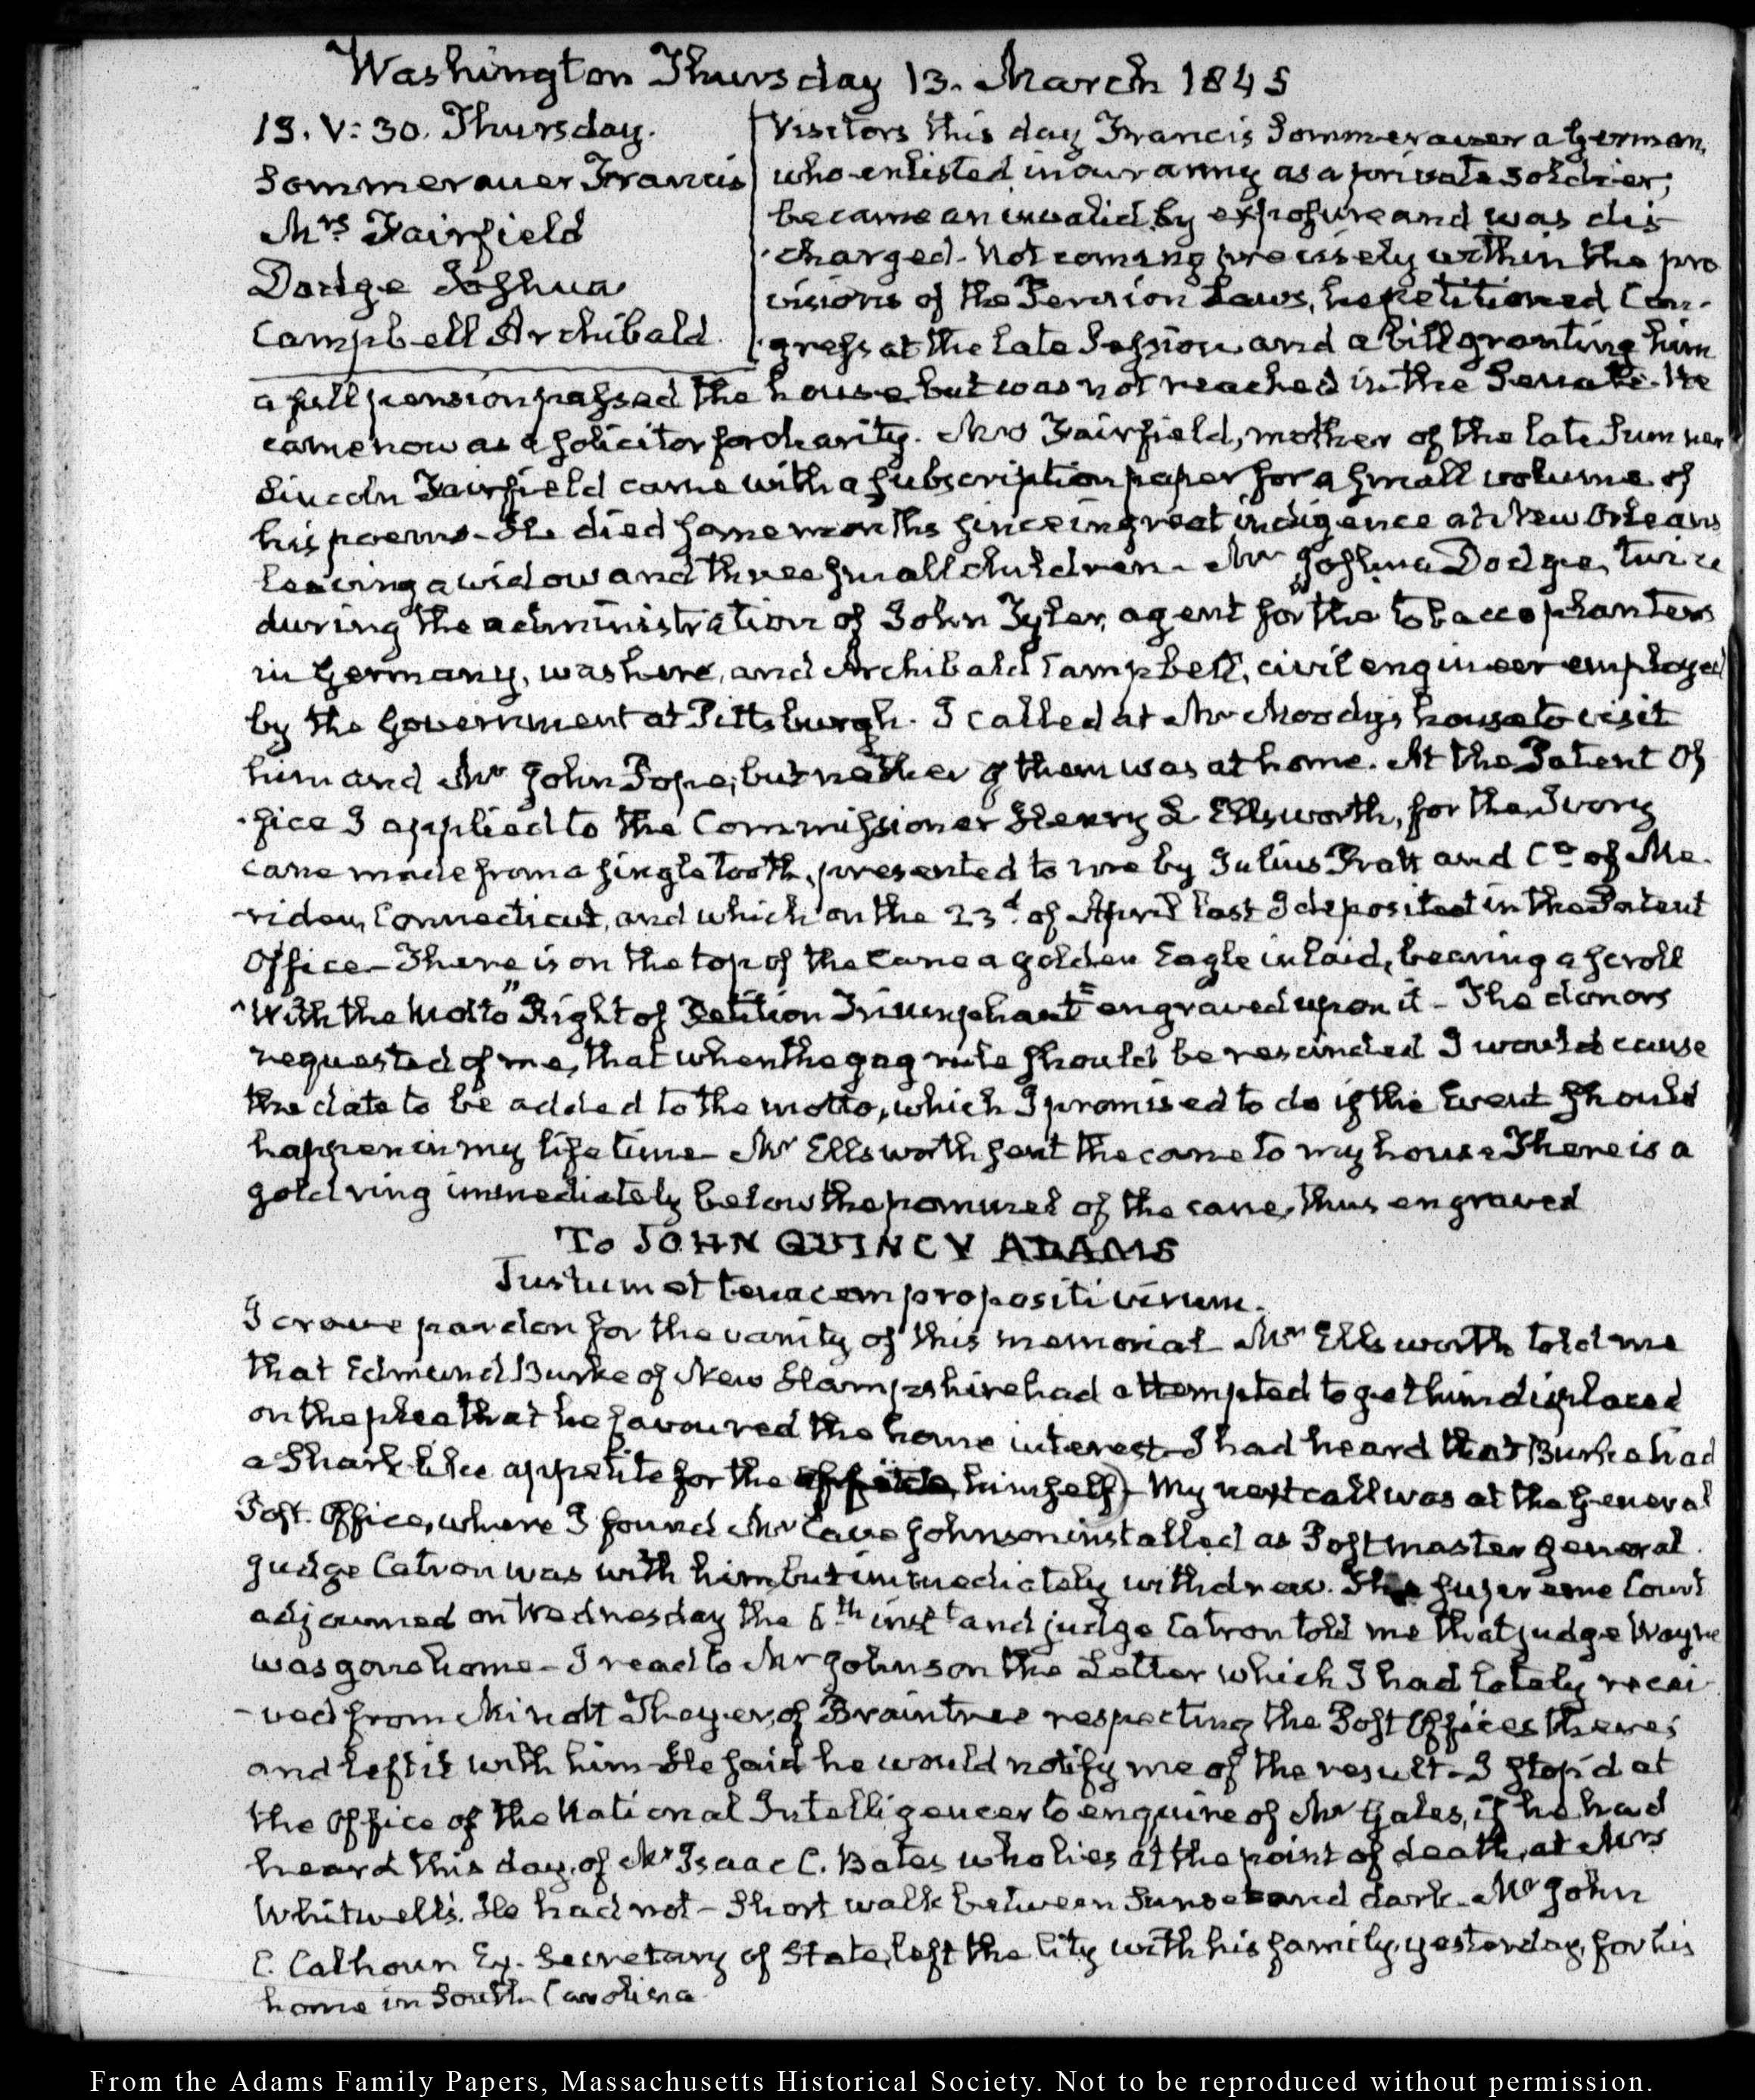 Washington Thursday 13. March 1845
13. V:30. Thursday.
Sommerauer Francis
Mrs Fairfield
Dodge Joshua
Campbell Archibald.
Visitors this day Francis Sommerauer a German,
who enlisted in our army as a private soldier;
became an invalid by exposure and was dis
charged. Not coming precisely within the pro
visions of the Pension Laws, he petitioned Con-
gress at the late Session and a bill granting him
a full pension passed the house but was not reached in the Senate. He
came now as a solicitor for charity. Mrs Fairfield, mother of the late Sumner
Lincoln Fairfield came with a subscription paper for a small volume of
his poems. He died some months since in great indigence at New Orleans
leaving a widow and three small children. Mr Joshua Dodge, twice
during the administration of John Tyler, agent for the tobacco planters
in Germany, was here, and Archibald Campbell, civil engineer employed
by the Government at Pittsburgh. I called at Mr Moody's house to visit
him and Mr John Pope; but neither of them was at home. At the Patent Of
-fice I applied to the Commissioner Henry L Ellsworth, for the Ivory
cane made from a single tooth, presented to me by Julius Pratt and Co of Me.
-riden, Connecticut, and which on the 23d. of April last I deposited in the Patent
Office— There is on the top of the Cane a golden Eagle inlaid, bearing a scroll
With the Motto "Right of Petition Triumphant" engraved upon it— The donors
requested of me, that when the gag rule should be rescinded I would cause
the date to be added to the motto, which I promised to do if the Event should
happen in my life time— Mr Ellsworth sent the cane to my house There is a
gold ring immediately below the pommel of the cane, thus engraved
To JOHN QUINCY ADAMS
Justum et tenacem propositi virum.
I crave pardon for the vanity of this memorial— Mr Ellsworth told me
that Edmund Burke of New Hampshire had attempted to get him displaced
on the plea that he favoured the home interest— I had heard that Burke had
a Shark like appetite for the himself)— My next call was at the General
Post. Office, where I found Mr Cave Johnson installed as Postmaster general.
Judge Catron was with him, but immediately withdrew. The supreme Court
adjourned on Wednesday the 6th inst and judge Catron told me that judge Wayne
was gone home— I read to Mr Johnson the Letter which I had lately recei
-ved from Minott Thayer, of Braintree respecting the Post Offices there;
and left it with him— He said he would notify me of the result— I stop'd at
the Office of the National Intelligencer to enquire of Mr Gales, if he had
heard this day, of Mr Isaac C. Bates who lies at the point of death, at Mrs
Whitwell's. He had not— Short walk between Sunset and dark— Mr John
C. Calhoun Ex. Secretary of State, left the City with his family, yesterday, for his
home in South Carolina